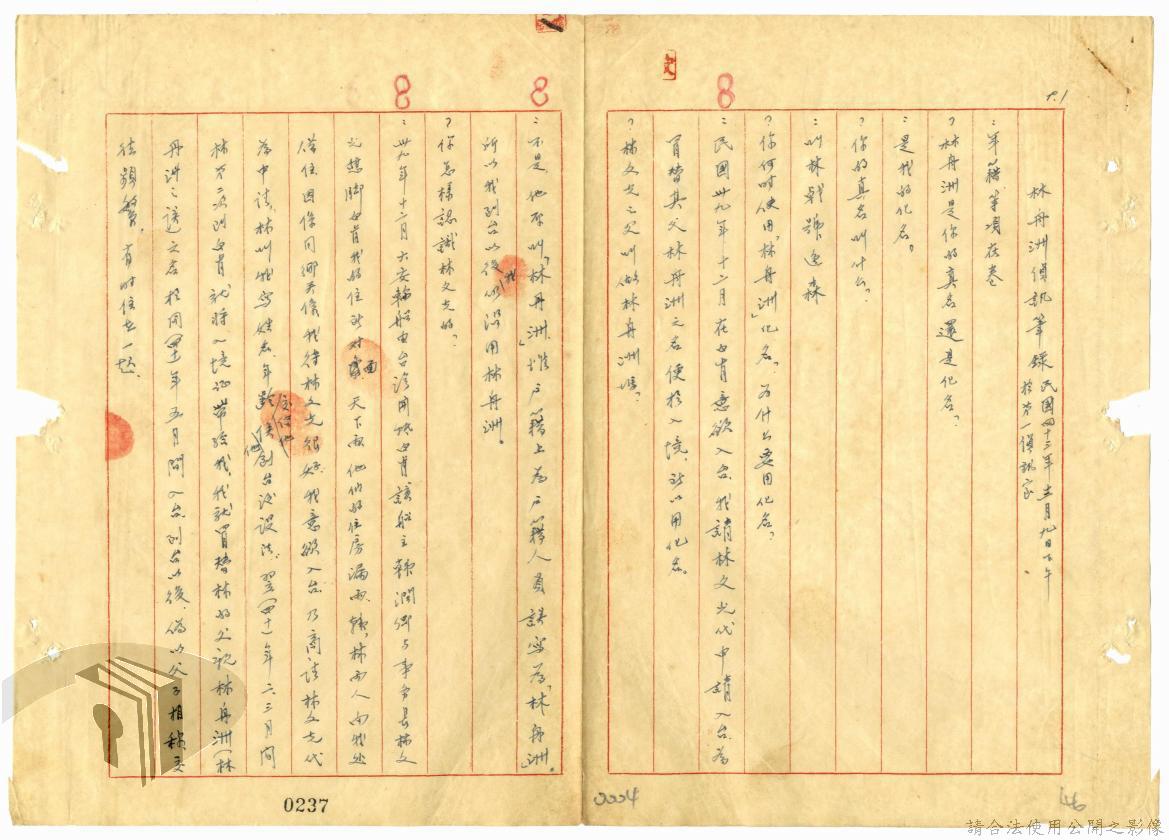 P.1
林丹洲偵訊筆錄 民國四十三年十一月九日下午
於第一偵訊室
:年籍等項在卷
?林舟洲是你的真名還是化名?
:是我的化名。
?你的真名叫什么?
:叫林 號逸森
?你何時使用「林舟洲」化名?為什么要用化名?
:民國卅九年十二月在 意欲入台,我請林文光代申請入台,為
冒替其父林丹洲之名便於入境,所以用化名。
?林文光之父叫做林舟洲嗎?
:不是,他原叫「林丹洲」,惟戶籍上為戶籍人員誤寫為「林舟洲」。
所以我到台以後我仍沿用林舟洲。
?你怎樣認識林文光的?
:卅九年十二月大安輪船由台灣開 該船主韓潤卿与事務長林文
光 腳 我的住所對面,天下雨,他倆的住房漏雨,韓、林两人向我处
借住,因係同鄉关係,我待林文光很好,我意欲入台,乃商請林文光代
為申請,林叫我寫姓名、年齡、 他到台後設法,翌(四十)年二三月間
林第二次到 就將入境证帶給我,我就冒替林的父親林舟洲(林
丹洲之誤)之名於同(四十)年五月間入台,到台以後,偽以父子相稱,交
往頻繁,有時住在一起。
8
8
8
0237
0004
146
請合法使用公開之影像